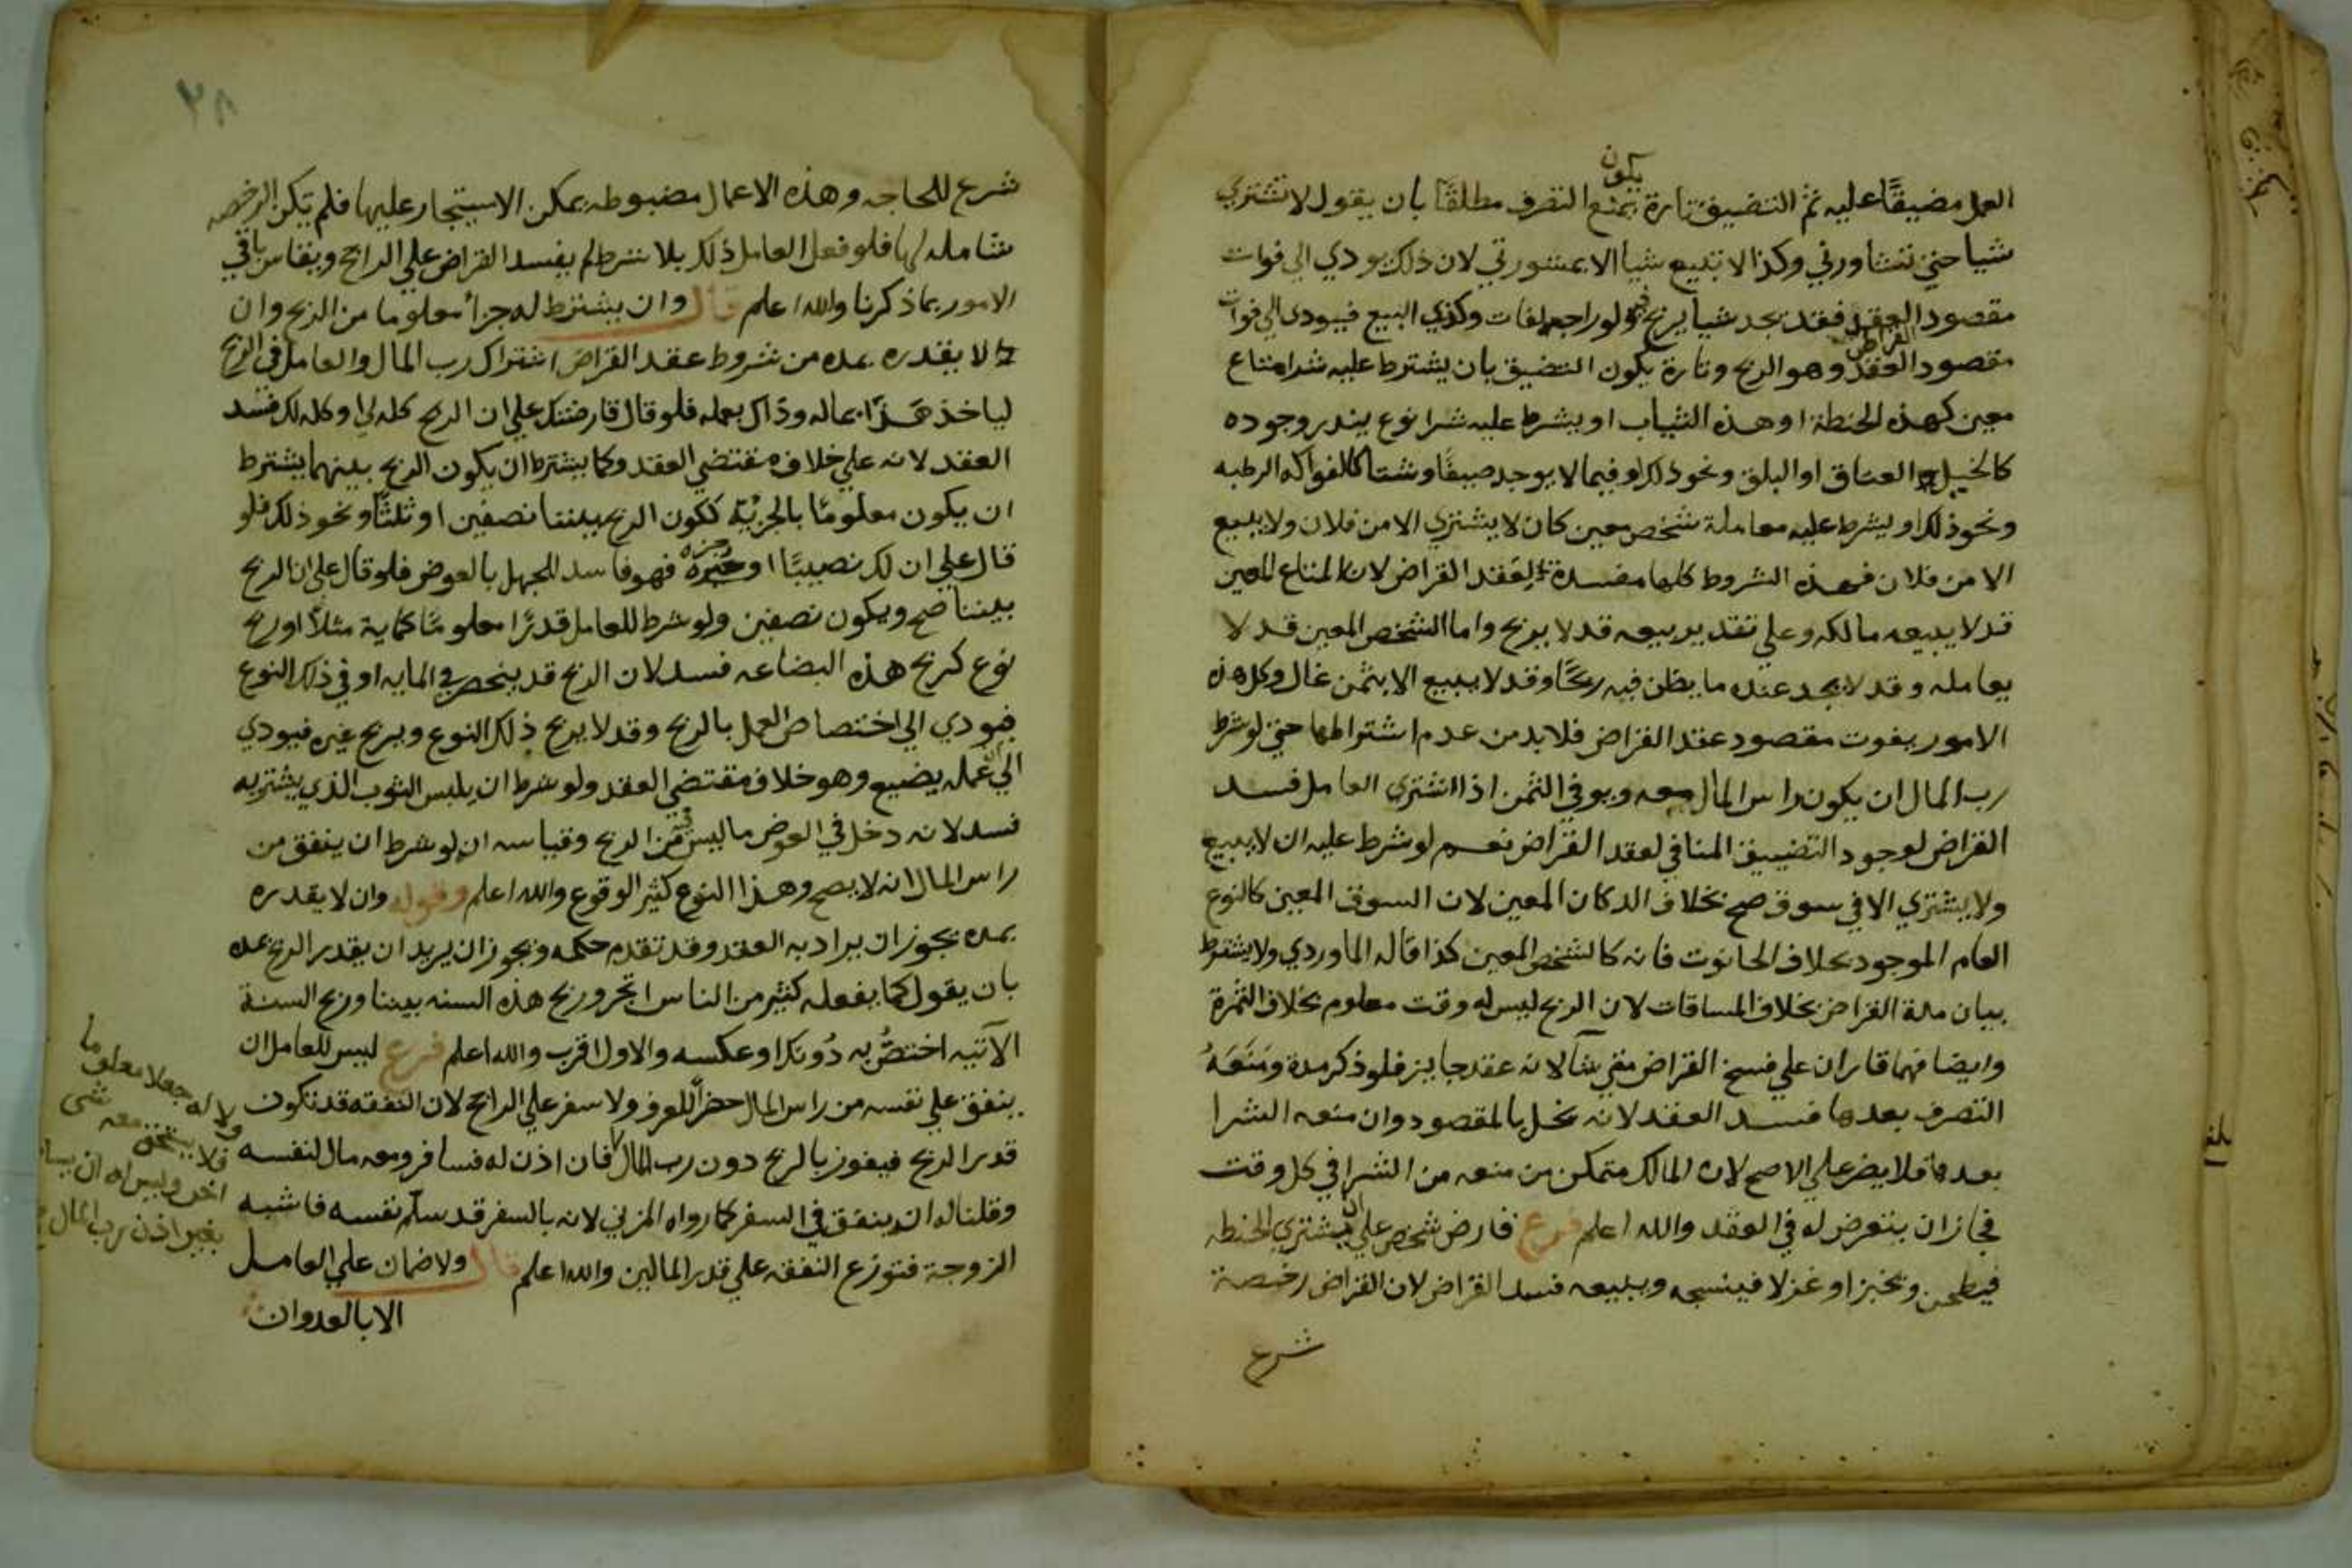 العمل مضيقًا عليه ثم التضييق تارة يكون بمنع التصرف مطلقًا بان يقول لا تشتري
شيا حتي تشاورني وكذا لا تبيع شيا الا بمشورتي لان ذلك يودي الي فوات
مقصود العقد فقد يجد شيا يربح فيه ولو راجعه لفات وكذي البيع فيودي الي فوات
مقصود القراض وهو الربح وتارة يكون التضييق بان يشترط عليه شرا متاع
معين كهذه الحنطة او هذه الثياب او يشرط عليه شرا نوع يندر وجوده
كالخيل العتاق او البلق ونحو ذلك او فيما لا يوجد صيفًا وشتا كالفواكه الرطبه
ونحو ذلك او يشرط عليه معاملة شخص معين كان لا يشتري الا من فلان ولا يبيع
الا من فلان فهذه الشروط كلها مفسدة لعقد القراض لان المتاع المعين
قد لا يبيعه مالكه وعلي تقدير بيعه قد لا يربح واما الشخص المعين قد لا
يعامله وقد لا يجد عنده ما يظن فيه ربحًا وقد لا يبيع الا بثمن غال وكل هذه
الامور يفوت مقصود عقد القراض فلا بد من عدم اشتراطها حتي لو شرط
رب المال ان يكون راس المال معه ويوفي الثمن اذا اشتري العامل فسد
القراض لوجود التضييق المنافي لعقد القراض نعم لو شرط عليه ان لا يبيع
ولا يشتري الا في سوق صح بخلاف الدكان المعين لان السوق المعين كالنوع
العام الموجود بخلاف الحانوت فانه كالشخص المعين كذا قاله الماوردي ولا يشترط
بيان مدة القراض بخلاف المساقات لان الربح ليس له وقت معلوم بخلاف الثمرة
وايضا فهما قادران علي فسخ القراض متي شآ لانه عقد جايز فلو ذكر مدة ومنعه
التصرف بعدها فسد العقد لانه يخل بالمقصود وان منعه الشرا
بعدها فلا يضر علي الاصح لان المالك متمكن من منعه من الشرا في كل وقت
فجاز ان يتعرض له في العقد والله اعلم فرع قارض شخص علي ان يشتري الحنطه
فيطحن ويخبز او غزلا فينسجه ويبيعه فسد القراض لان القراض رخصة
شرع
شرع للحاجه وهذه الاعمال مضبوطه يمكن الاستيجار عليها فلم تكن الرخصه
شامله لها فلو فعل العامل ذلك بلا شرط لم يفسد القراض علي الراجح ويقاس باقي
الامور بما ذكرنا والله اعلم قال وان يشترط له جزأ معلوما من الربح وان
لا يقدره بمده من شروط عقد القراض اشتراك رب المال والعامل في الربح
لياخذ هذا بماله وذاك بعمله فلو قال قارضتك علي ان الربح كله لي او كله لك فسد
العقد لانه علي خلاف مقتضي العقد وكما يشترط ان يكون الربح بينهما يشترط
ان يكون معلومًا بالجزئية ككون الربح بيننا نصفين او ثلثًا ونحو ذلك فلو
قال علي ان لك نصيبًا او جزء فهو فاسد للجهل بالعوض فلو قال علي ان الربح
بيننا صح ويكون نصفين ولو شرط للعامل قدرًا معلومًا كماية مثلًا او ربح
نوع كربح هذه البضاعه فسد لان الربح قد ينحصر في المايه او في ذلك النوع
فيودي الي اختصاص العمل بالربح وقد لا يربح ذلك النوع ويربح غيره فيودي
الي ان عمله يضيع وهو خلاف مقتضي العقد ولو شرط ان يلبس الثوب الذي يشتريه
فسد لانه دخل في العوض ما ليس من الربح وقياسه انه لو شرط ان ينفق من
راس المال انه لا يصح وهذا النوع كثير الوقوع والله اعلم وقوله وان لا يقدره
بمده يجوز ان يراد به العقد وقد تقدم حكمه ويجوز ان يريد ان يقدر الربح بمده
بان يقول كما يفعله كثير من الناس اتجر وربح هذه السنه بيننا وربح السنة
الآتيه اختصّ به دونك او عكسه والاول اقرب والله اعلم فرع ليس للعامل ان
ينفق علي نفسه من راس المال حضرًا للعرف ولا سفر علي الراجح لان النفقه قد تكون
قدر الربح فيفوز بالربح دون رب المال فان اذن له فسافر ومعه مال لنفسه
وقلنا له ان ينفق في السفر كما رواه المزني لانه بالسفر قد سلم نفسه فاشبه
الزوجة فتوزع النفقه علي قدر المالين والله اعلم قال ولا ضمان علي العامل
الا بالعدوان
ولا له جعلا معلوما
فلا يستحق معه شي
اخر وليس له ان يسا
بغير اذن رب المال
٢٨